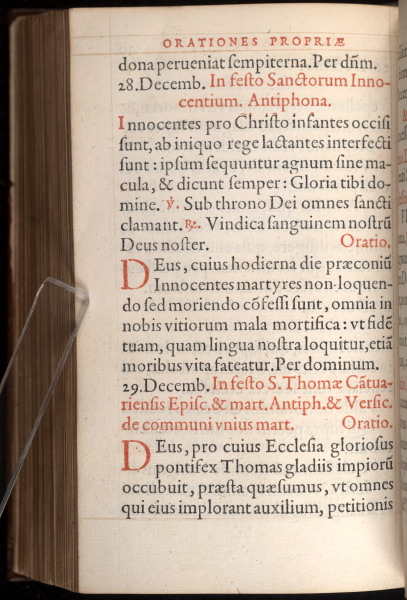 ORATIONES PROPRIÆ
dona perueniat sempiterna. Per dñm.
28. Decemb. In festo Sanctorum Inno-
centium. Antiphona.
Innocentes pro Christo infantes occisi
sunt, ab iniquo rege lactantes interfecti
sunt: ipsum sequuntur agnum sine ma-
cula, & dicunt semper: Gloria tibi do-
mine. ℣. Sub throno Dei omnes sancti
clamant. ℟. Vindica sanguinem nostrũ
Deus noster. Oratio.
Deus, cuius hodierna die præconiũ
Innocentes martyres non loquen-
do sed moriendo cõfessi sunt, omnia in
nobis vitiorum mala mortifica: vt fidẽ
tuam, quam lingua nostra loquitur, etiã
moribus vita fateatur. Per dominum.
29. Decemb. In festo S. Thomæ Cãtua-
riensis Episc. & mart. Antiph. & Versic.
de communi vnius mart. Oratio.
Deus, pro cuius Ecclesia gloriosus
pontifex Thomas gladiis impiorũ
occubuit, præsta quæsumus, vt omnes
qui eius implorant auxilium, petitionis